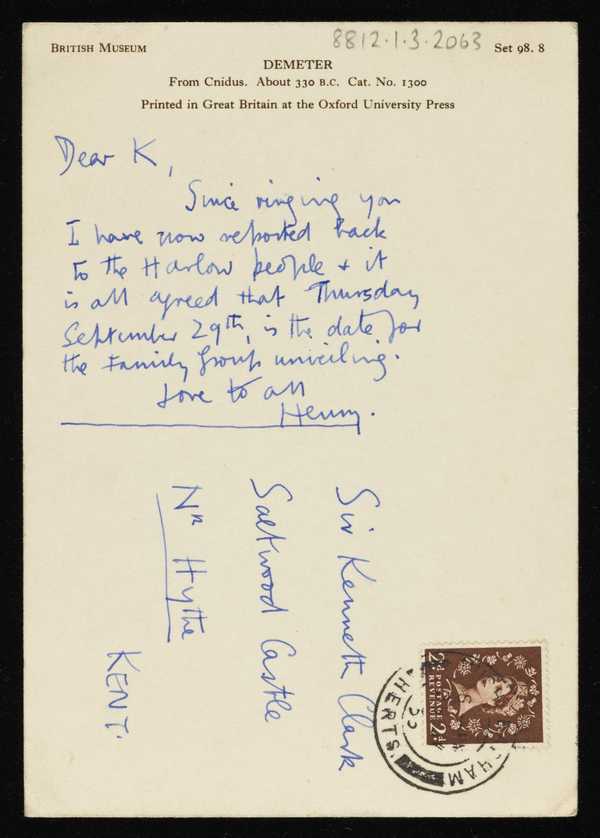 BRITISH MUSEUM
8812.1.3.2063
Set 98. 8
DEMETER
From Cnidus. About 330 B.C. Cat. No. 1300
Printed in Great Britain at the Oxford University Press
Dear K,
Since ringing you
I have now reported back
to the Harlow people & it
is all agreed that Thursday
September 29th, is the date for
the Family Group unveiling.
Love to all
Henry.
Sir Kenneth Clark
Saltwood Castle
Nr Hythe
KENT.
2½d POSTAGE REVENUE 2½d
HAM
HERTS